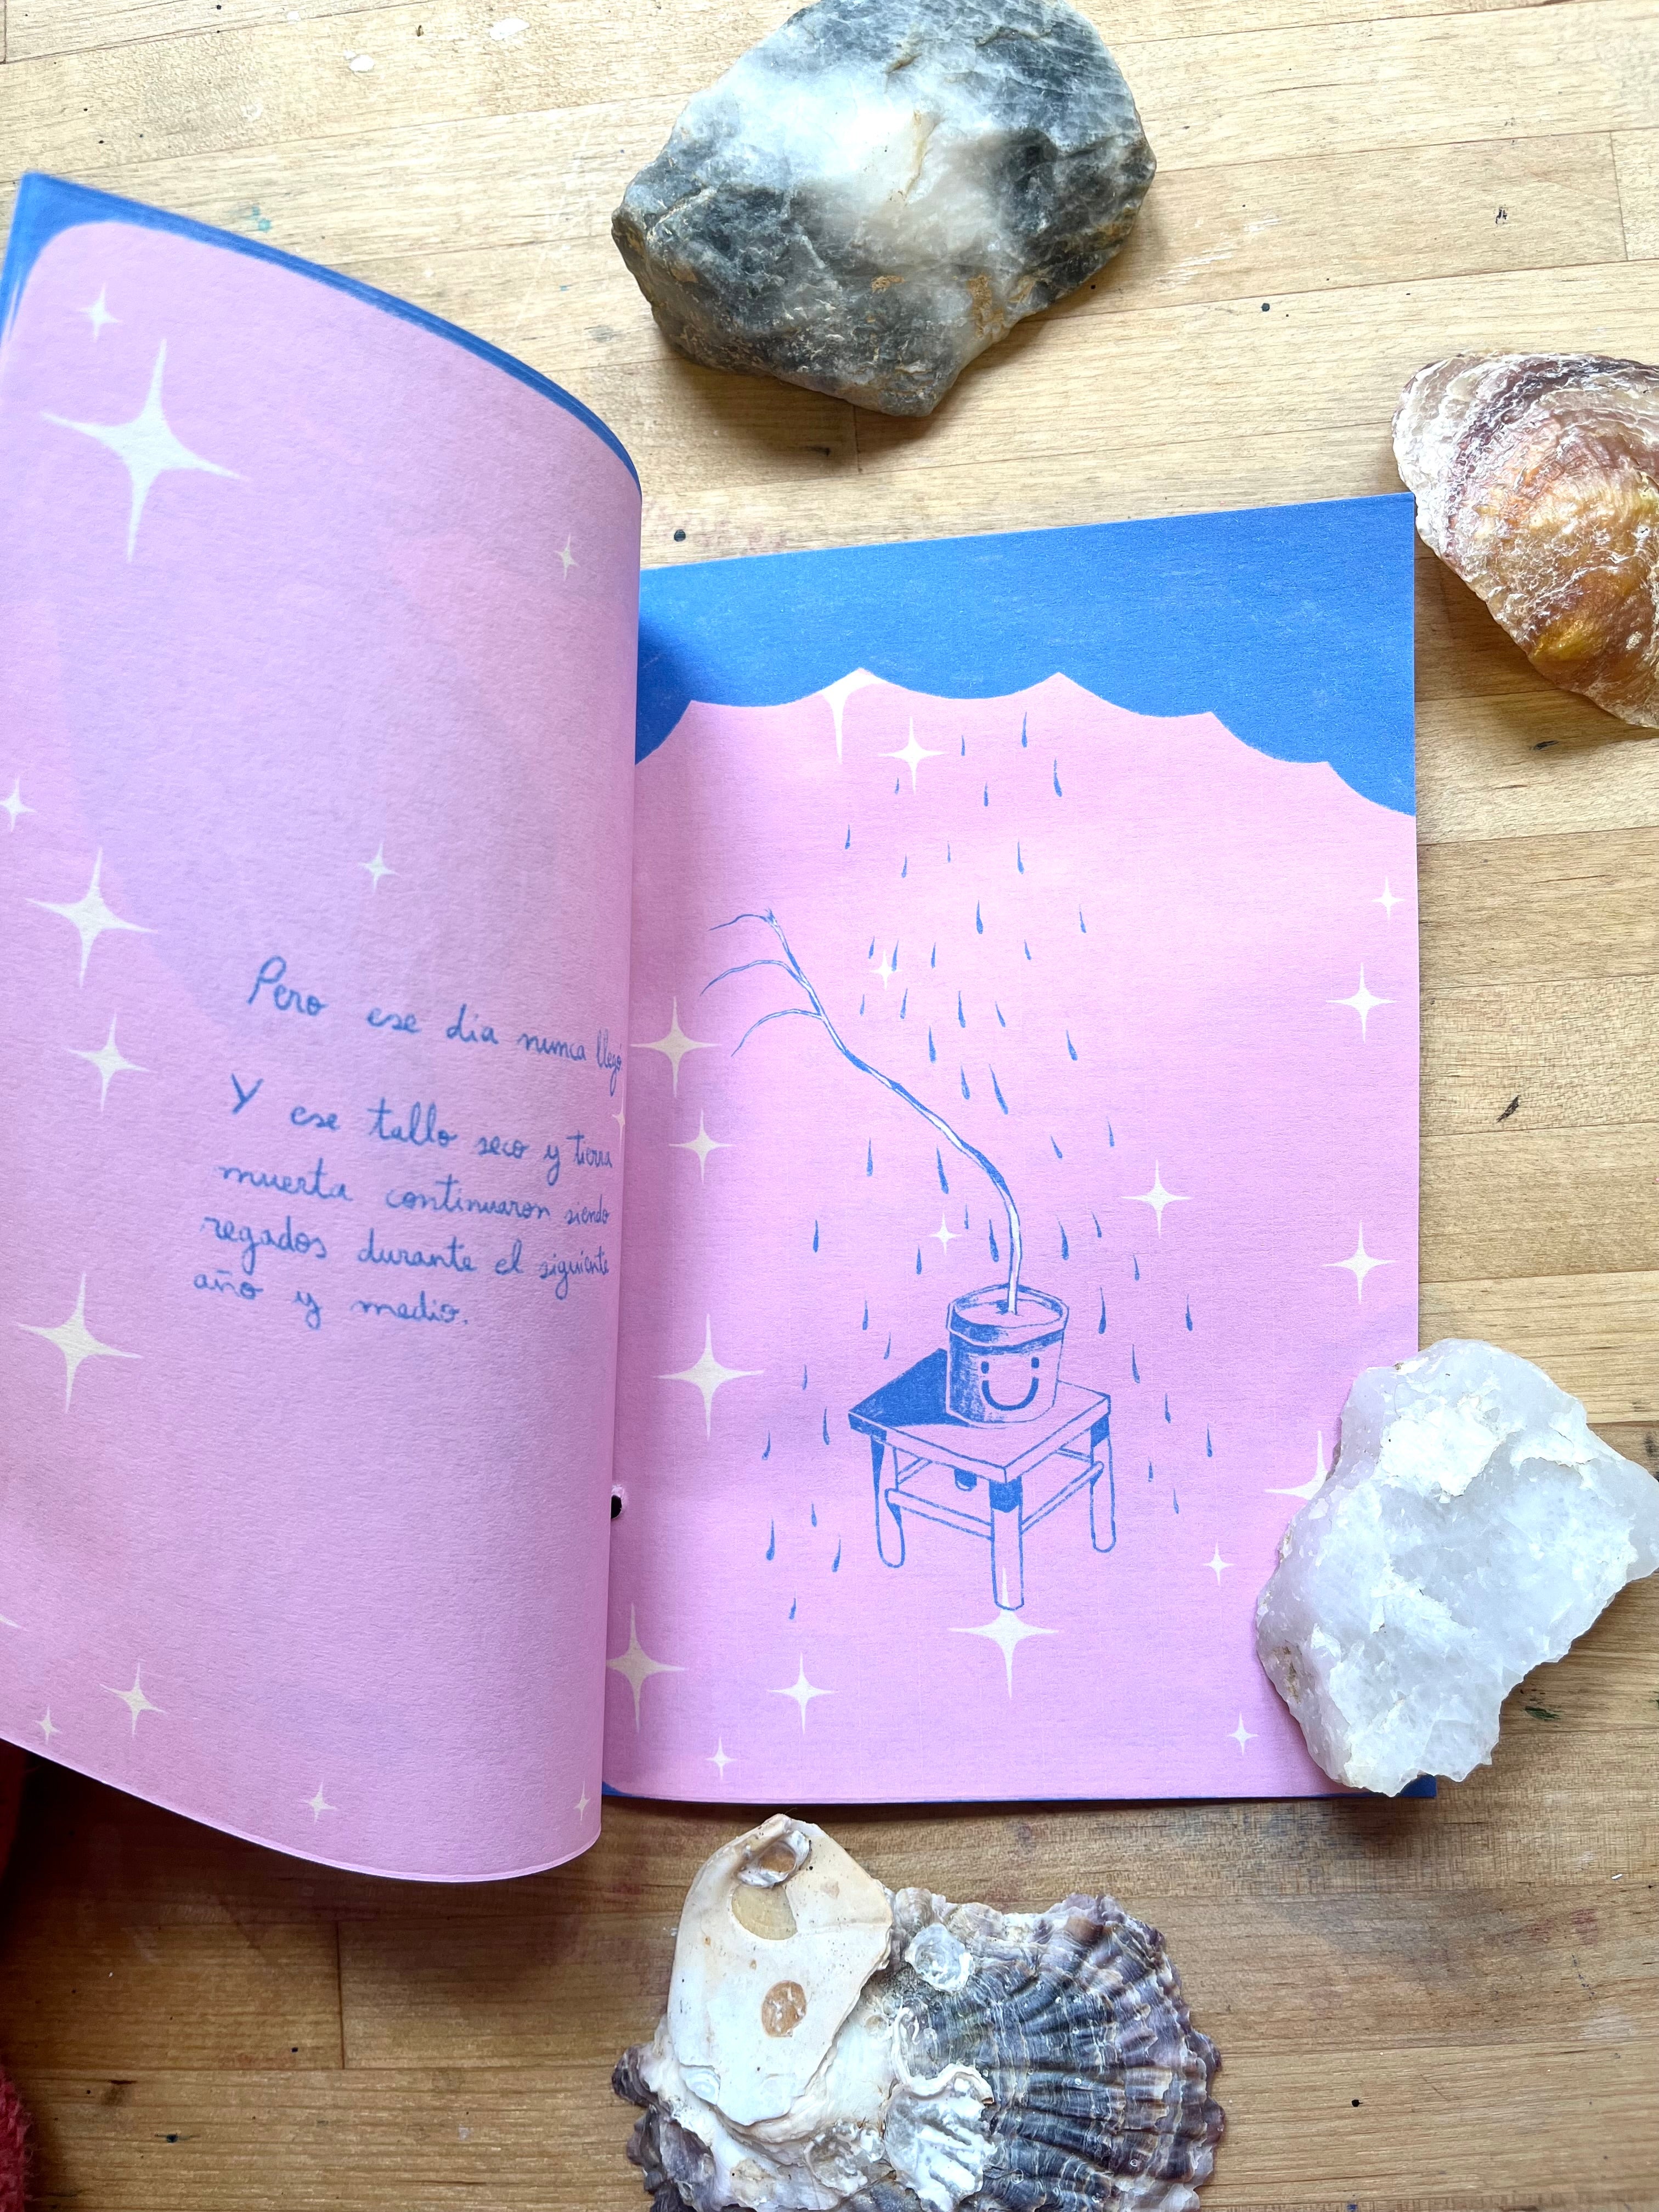 Pero ese día nunca llegó
Y ese tallo seco y tierra
muerta continuaron siendo
regados durante el siguiente
año y medio.